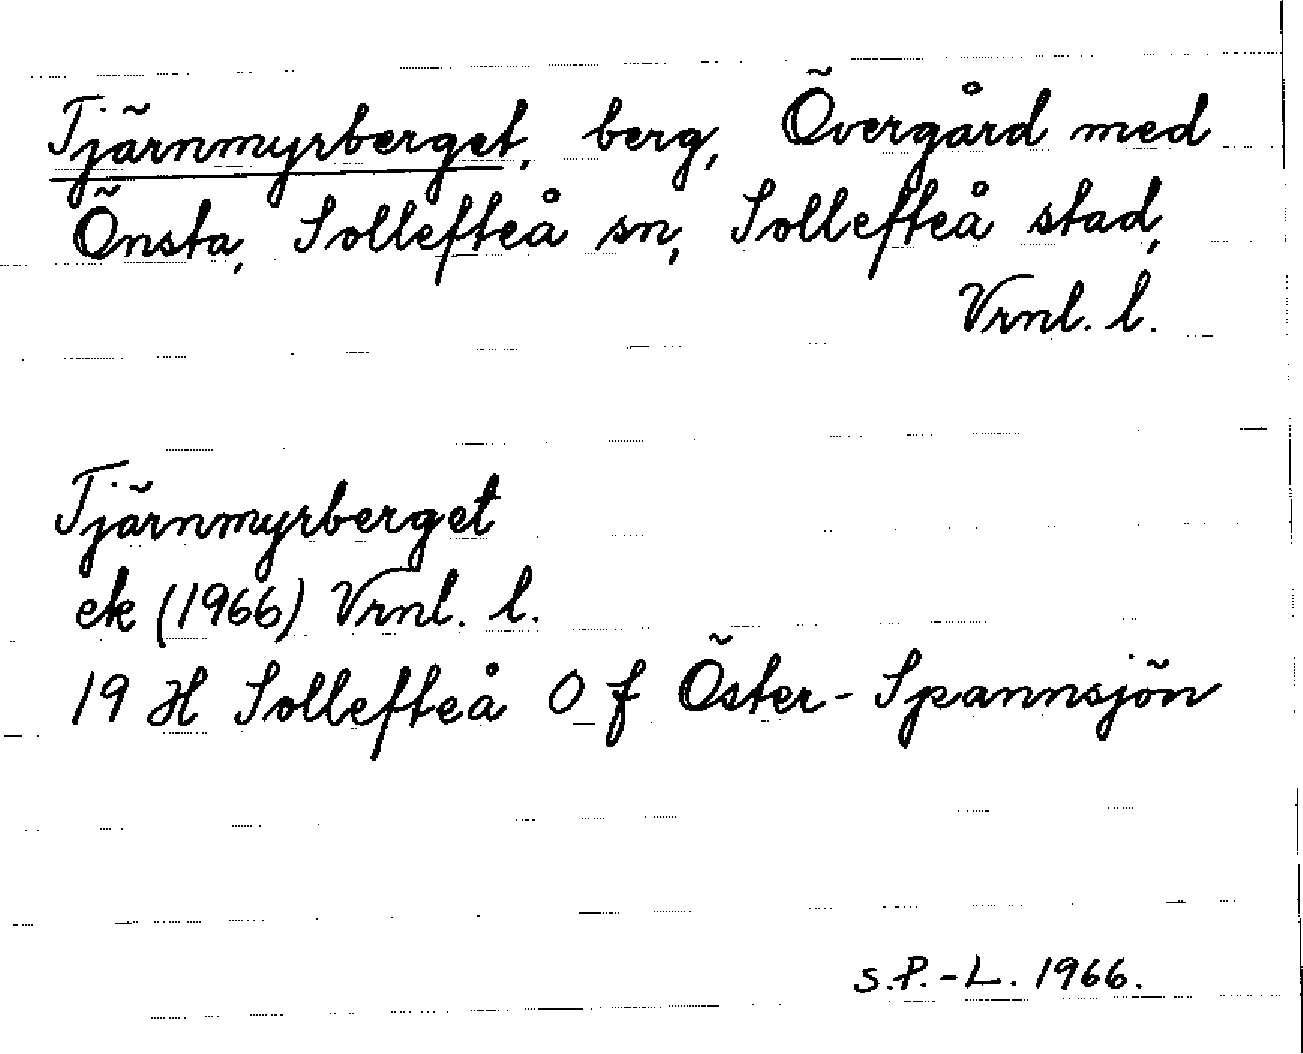 Tjärnmyrberget, berg, Övergård med
Önsta, Sollefteå sn, Sollefteå stad,
Vrnl. l.
Tjärnmyrberget
ek (1966) Vrnl. l.
19 H Sollefteå O f Öster-Spannsjön
S.P.-L. 1966.